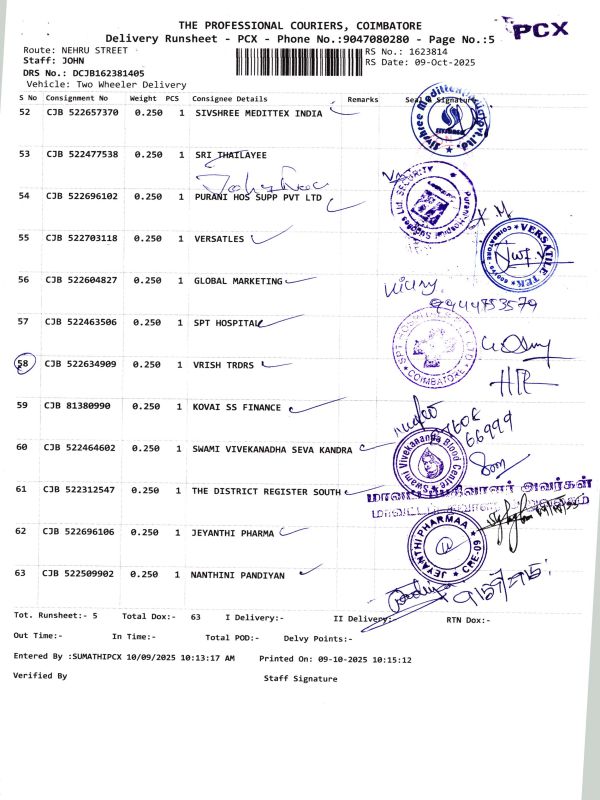 THE PROFESSIONAL COURIERS, COIMBATORE
PCX
Delivery Runsheet - PCX - Phone No.:9047080280 - Page No.:5
Route: NEHRU STREET
RS No.: 1623814
Staff: JOHN
RS Date: 09-Oct-2025
DRS No.: DCJB162381405
Vehicle: Two Wheeler Delivery
S No Consignment No Weight PCS Consignee Details Remarks Seal Signature
52 CJB 522657370 0.250 1 SIVSHREE MEDITTEX INDIA
Sivshree Medittex India Pvt. Ltd.
53 CJB 522477538 0.250 1 SRI THAILAYEE
54 CJB 522696102 0.250 1 PURANI HOS SUPP PVT LTD
SECURITY
55 CJB 522703118 0.250 1 VERSATLES
VERSATILE TEK
COIMBATORE
56 CJB 522604827 0.250 1 GLOBAL MARKETING
9944753579
57 CJB 522463506 0.250 1 SPT HOSPITAL
SPT HOSPITAL
COIMBATORE
58 CJB 522634909 0.250 1 VRISH TRDRS
59 CJB 81380990 0.250 1 KOVAI SS FINANCE
66999
60 CJB 522464602 0.250 1 SWAMI VIVEKANADHA SEVA KANDRA
Swami Vivekananda Blood Centre
61 CJB 522312547 0.250 1 THE DISTRICT REGISTER SOUTH
மாவட்டப்பதிவாளர் அவர்கள்
62 CJB 522696106 0.250 1 JEYANTHI PHARMA
JEYANTHI PHARMAA
CBE-09
63 CJB 522509902 0.250 1 NANTHINI PANDIYAN
Tot. Runsheet:- 5 Total Dox:- 63 I Delivery:- II Delivery:- RTN Dox:-
Out Time:- In Time:- Total POD:- Delvy Points:-
Entered By :SUMATHIPCX 10/09/2025 10:13:17 AM Printed On: 09-10-2025 10:15:12
Verified By Staff Signature